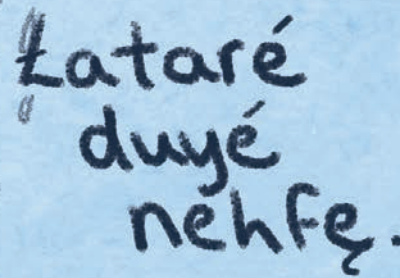 Łataré
duyé
nehfę.